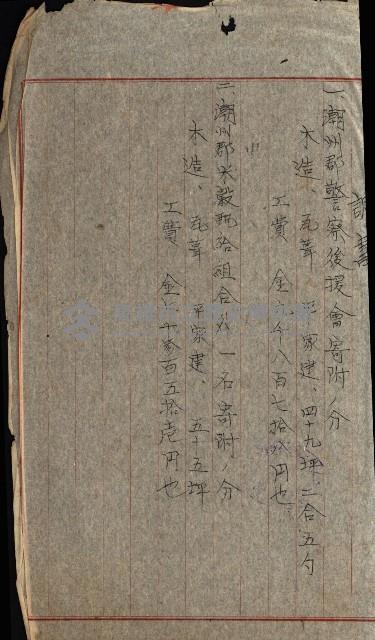 調書
一、潮州郡警察後援會寄附ノ分
木造、瓦葺、平家建、四十九坪、二合五勺
工費 金 千八百七拾 円也
二、潮州郡米穀 組合 一石寄附ノ分
木造、瓦葺 平家建、五十五坪
工費 金 千 百五拾壱円也